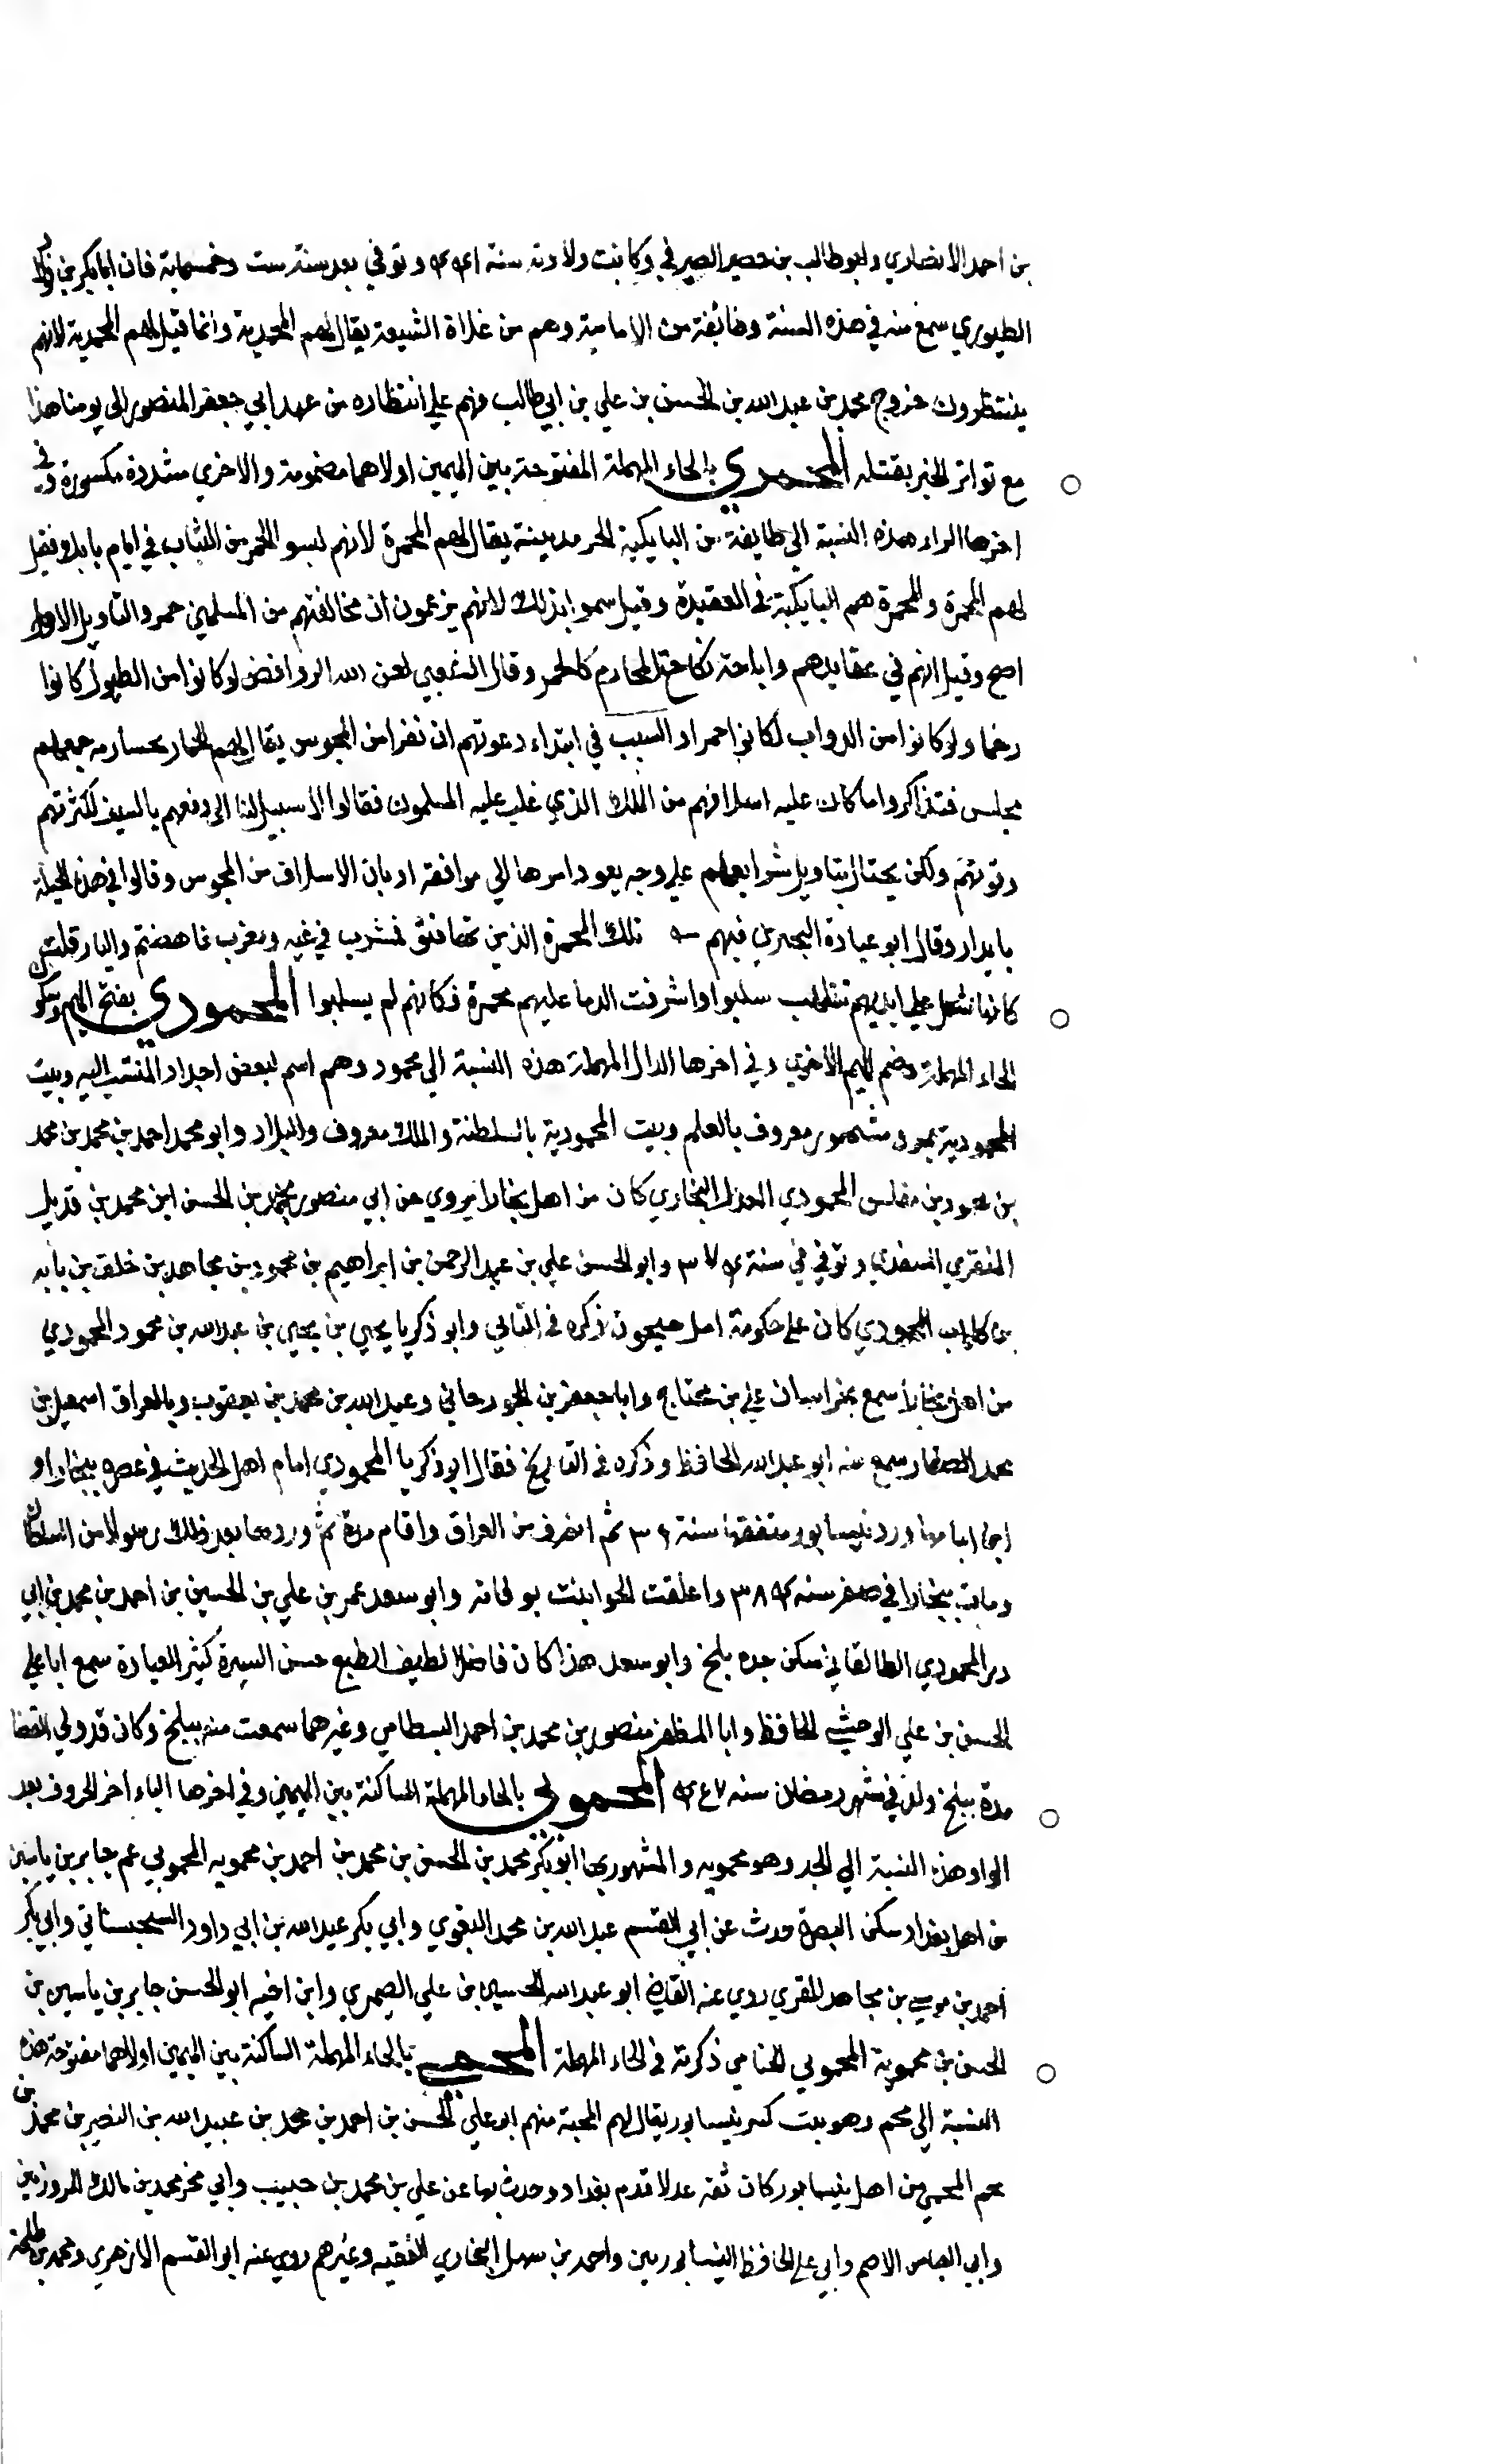 بن احمد الانصاري وابو طالب بن خضير الصيرفي وكانت ولادته سنة وتوفي بعد سنة ست وخمسماية فان ابا بكر بن
الطيوري سمع منه في هذه السنة وطائفة من الامامية وهم من غلاة الشيعة يقال لهم المحمدية وانما قيل لهم المحمدية لانهم
ينتظرون خروج محمد بن عبد الله بن الحسن بن علي بن ابي طالب فهم علي انتظاره من عهد ابي جعفر المنصور الي يومنا هذا
مع تواتر الخبر بقتله المحمري بالحاء المهملة المفتوحة بين الميمين اولاهما مضمومة والاخري مشددة مكسورة وفي
اخرها الراء هذه النسبة الي طايفة من البابكية الخرمدينية يقال لهم المحمرة لانهم لبسوا الحمر من الثياب في ايام بابك وقيل
لهم المحمرة والمحمرة هم البابكية في العقيدة وقيل سموا بذلك لانهم يزعمون ان مخالفيهم من المسلمين حمر والتاويل الاول
اصح وقيل انهم في عقايدهم واباحة نكاح المحارم كالحمر وقال الشعبي لعن الله الروافض لو كانوا من الطيور كانوا
رخما ولو كانوا من الدواب لكانوا حمرا والسبب في ابتداء دعوتهم ان نفرا من المجوس يقال لهم جمعهم
مجلس فتذاكروا ما كان عليه اسلافهم من الملك الذي غلب عليه المسلمون فقالوا لا سبيل لنا الي دفعهم بالسيف لكثرتهم
وقوتهم ولكن يحتال بتاويل شرايعهم علي وجه يعود امرها الي موافقة اديان الاسلاف من المجوس وقالوا في هذه الحيلة
وقال ابو عبادة البحتري فيهم تلك المحمرة الذين تهافتوا فمشرق في غيه ومغرب
علي ايديهم سلبوا واشرقت الدما عليهم محمرة فكانهم لم يسلبوا المحمودي بفتح الميم وسكون
الحاء المهملة وضم الميم الاخري وفي اخرها الدال المهملة هذه النسبة الي محمود وهم اسم لبعض اجداد المنتسب اليه وبيت
المحمودية بمرو مشهور معروف بالعلم وبيت المحمودية بالسلطنة والملك معروف والبلاد وابو محمد احمد بن محمد بن محمد
بن محمود بن مفلس المحمودي المعدل البخاري كان من اهل بخارا يروي عن ابي منصور محمد بن الحسن ابن محمد بن قديل
المقري السغدي وتوفي في سنة وابو الحسن علي بن عبد الرحمن بن ابراهيم بن محمود بن مجاهد بن خلف بن
بن المحمودي كان علي حكومة امل جيحون ذكره في الثاني وابو ذكريا يحيي بن يحيي بن عبد الله بن محمود المحمودي
من اهل بخارا سمع بخراسان علي بن محتاج وابا جعفر بن الجورجاني وعبد الله بن محمد بن يعقوب وبالعراق اسمعيل بن
محمد الصفار سمع منه ابو عبد الله الحافظ وذكره في التاريخ فقال ابو ذكريا المحمودي امام اهل الحديث في عصره ببخارا و
ورد نيسابور متفقها سنة ثم انصرف من العراق واقام مدة ثم وردها بعد ذلك رسولا من السلطان
ومات ببخارا في صفر سنه واغلقت الحوانيت بوفاته وابو سعد عمر بن علي بن الحسين بن احمد بن محمد بن ابي
ذر المحمودي الطالقاني سكن جده بلخ وابو سعد هذا كان فاضلا لطيف الطبع حسن السيرة كثير العبادة سمع ابا علي
الحسن بن علي الوخشي الحافظ وابا المظفر منصور بن محمد بن احمد البسطامي وغيرهما سمعت منه ببلخ وكان قد ولي القضا
مدة ببلخ ولد في شهر رمضان سنه المحمويي بالحاء المهملة الساكنة بين الميمين وفي اخرها الياء اخر الحروف بعد
الواو هذه النسبة الي الجد وهو محمويه والمشهور بها ابو بكر محمد بن الحسن بن محمد بن احمد بن محمويه المحمويي عم جابر بن ياسين
من اهل بغداد سكن البصرة وحدث عن ابي القسم عبد الله بن محمد البغوي وابي بكر عبد الله بن ابي داود السجستاني وابي بكر
احمد بن موسي بن مجاهد المقري روي عنه القاضي ابو عبد الله الحسين بن علي الصيمري وابن اخيه ابو الحسن جابر بن ياسين بن
الحسن بن محموية المحمويي الحنايي ذكرته في الحاء المهملة المحمي بالحاء المهملة الساكنة بين الميمين اولاهما مفتوحة هذه
النسبة الي محم وهو بيت كبير بنيسابور يقال لهم المحمية منهم ابو علي الحسن بن احمد بن محمد بن عبيد الله بن النضر بن محمد بن
محم المحمي من اهل نيسابور كان ثقه عدلا قدم بغداد وحدث بها عن علي بن محمد بن حبيب وابي محمد بن مالك المروزيين
وابي العباس الاصم وابي علي الحافظ النيسابوريين واحمد بن سهل البخاري الفقيه وغيرهم روي عنه ابو القسم الازهري ومحمد بن طلحة